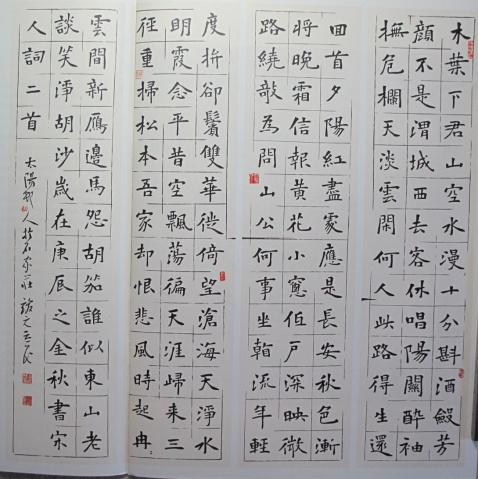 木葉下君山空水漫十分斟酒斂芳
顏不是渭城西去客休唱陽關醉袖
撫危欄天淡雲閑何人此路得生還
回首夕陽紅盡處應是長安秋色漸
將晚霜信報黃花小窻低戶深映微
路繞敧為問山公何事坐看流年輕
度拚卻鬢雙華徙倚望滄海天淨水
明霞念平昔空飄蕩徧天涯歸來三
徑重掃松本吾家却恨悲風時起冉
雲間新鴈邊馬怨胡笳誰似東山老
談笑淨胡沙歲在庚辰之金秋書宋
人詞二首
太陽邨人於石家莊